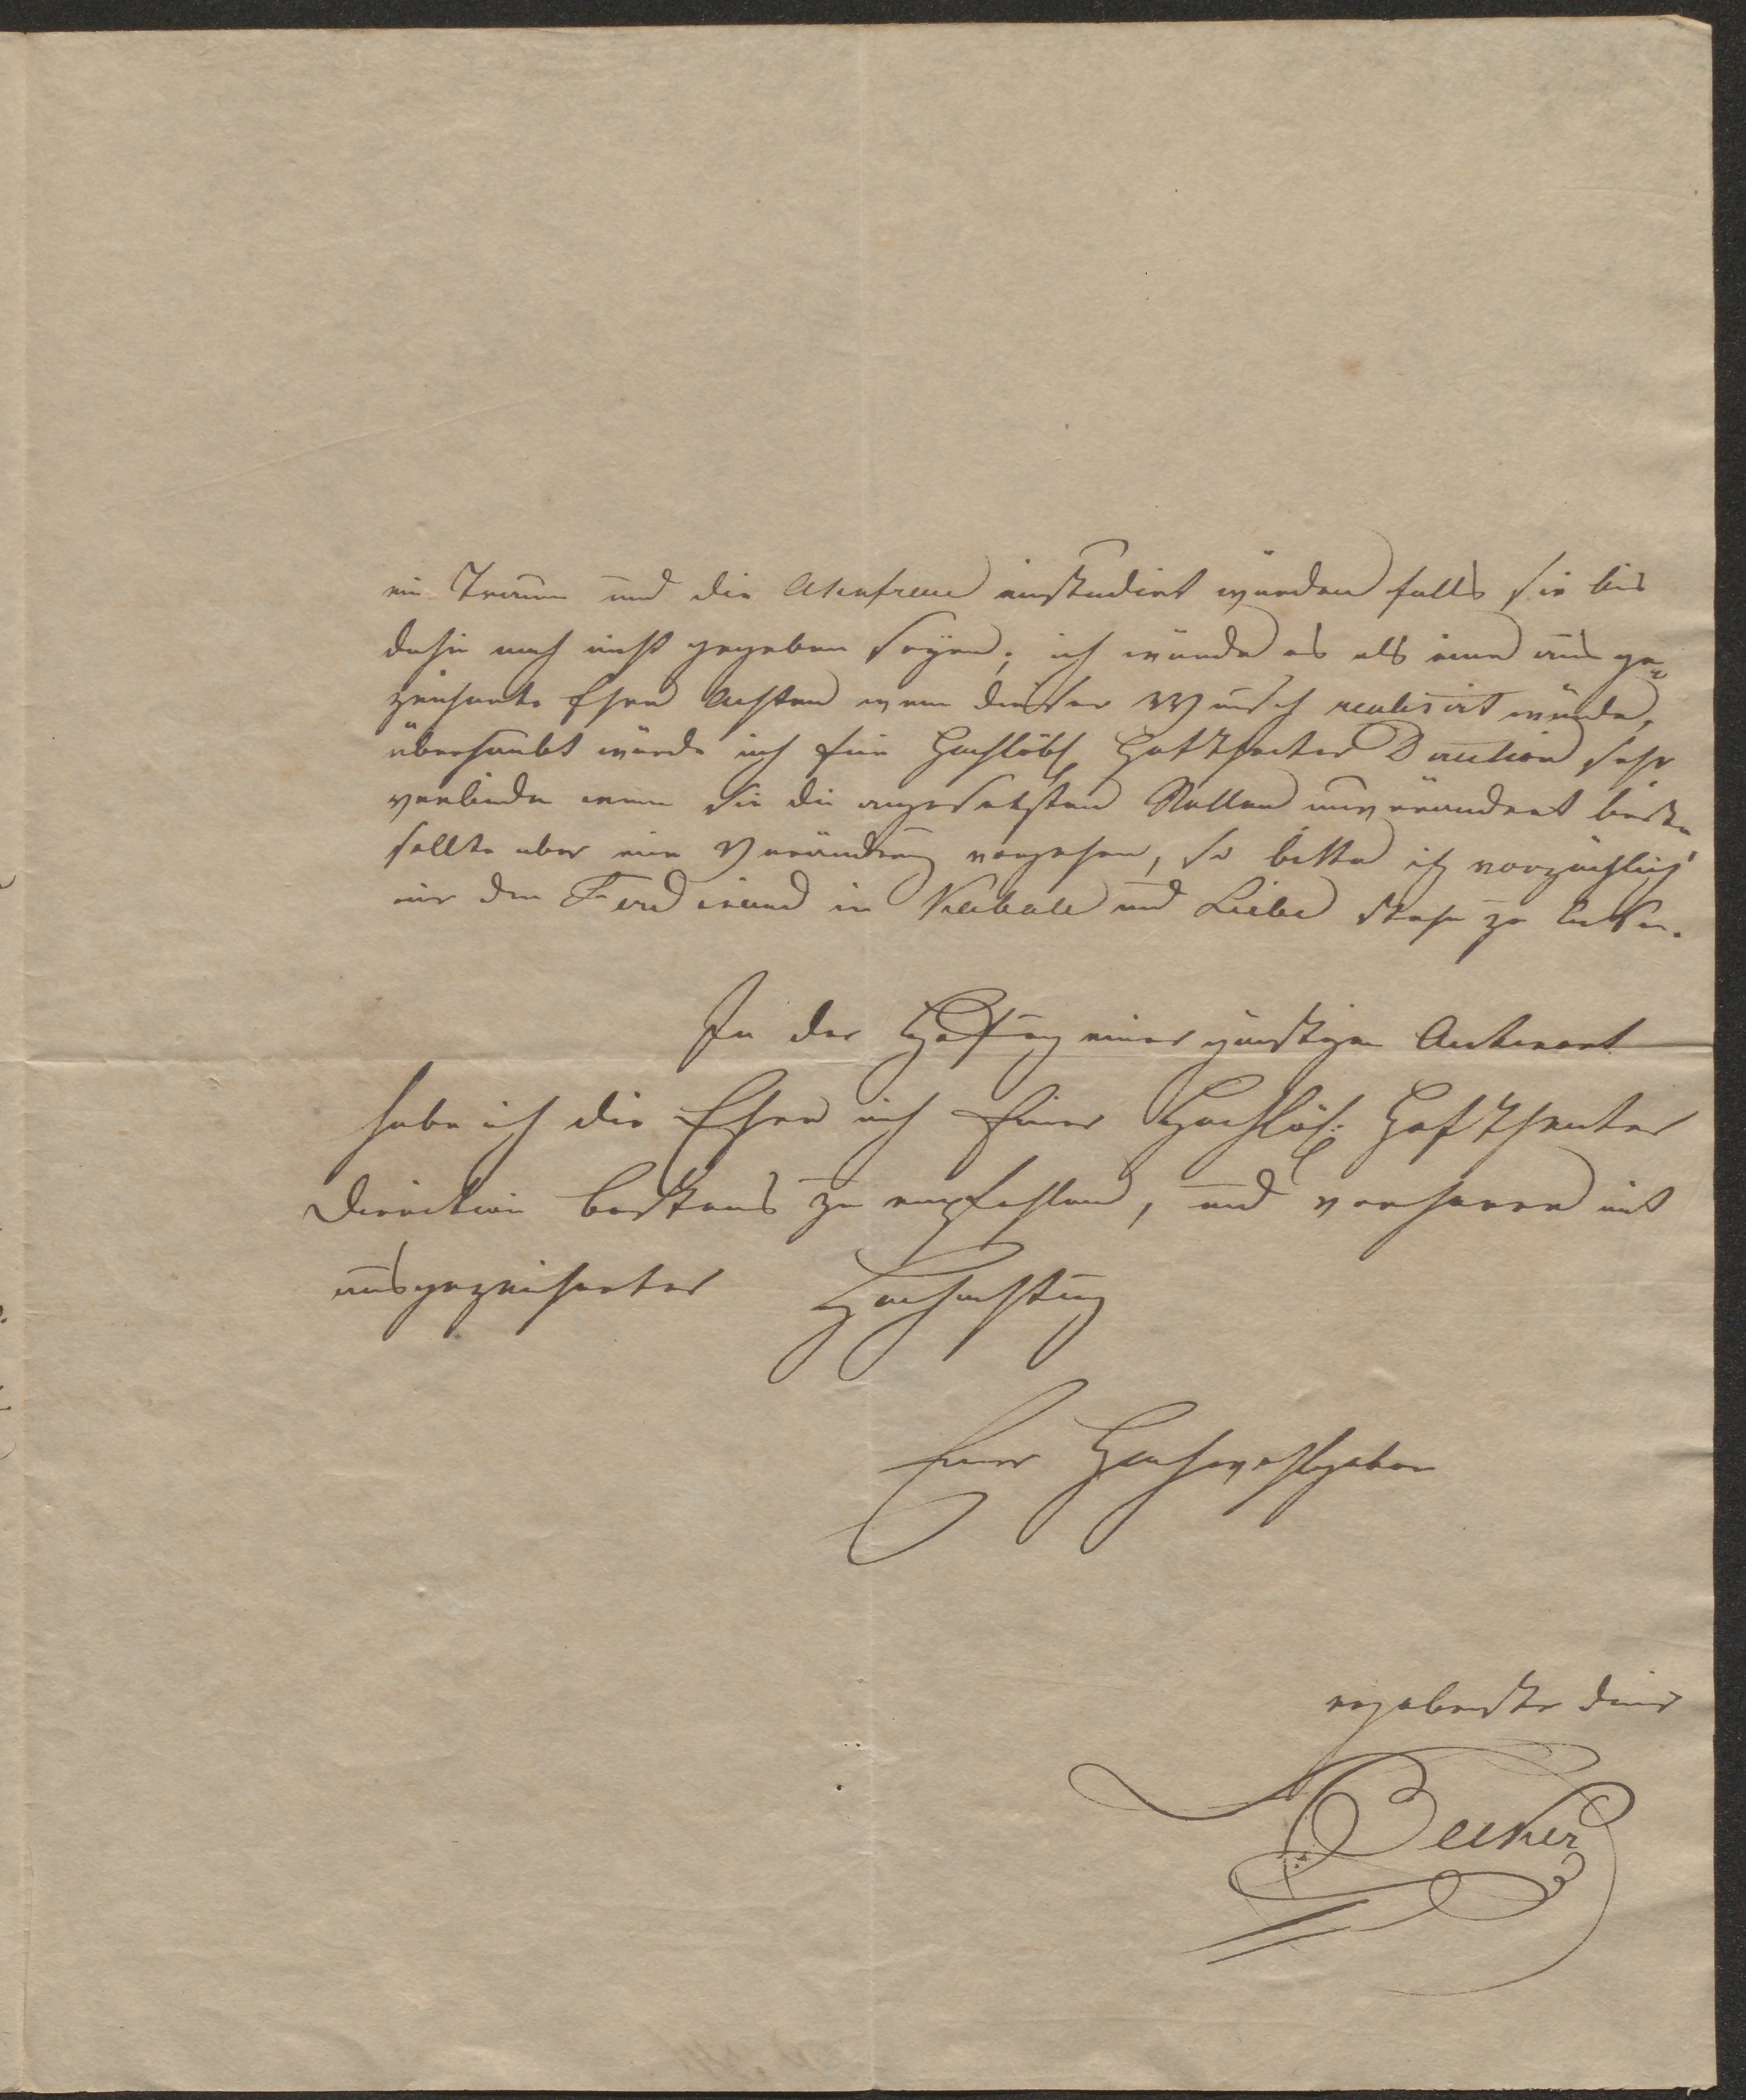 ein Traum und die Ahnfrau einstudirt würden falls sie bis
dahin noch nicht gegeben seyen; ich würde es als eine ausge-
zeichnete Ehre achten wenn dieser Wunsch realisirt würde,
überhaubt würde mich eine Hochlöbl Hoftheater Direction sehr
verbinden wenn sie die angesetzten Rollen unverändert ließe,
sollte aber eine Veränderung vorgehen, so bitte ich vorzüglich
mir den Ferdinand in Kabale und Liebe stehn zu lassen.
In der Hoffnung einer günstigen Antwort
habe ich die Ehre mich Einer Hochlöb: Hoftheater
Direction bestens zu empfehlen, und verharre mit
ausgezeichneter Hochachtung
Euer Hochwohlgeboren
ergebenster Diener
Becker